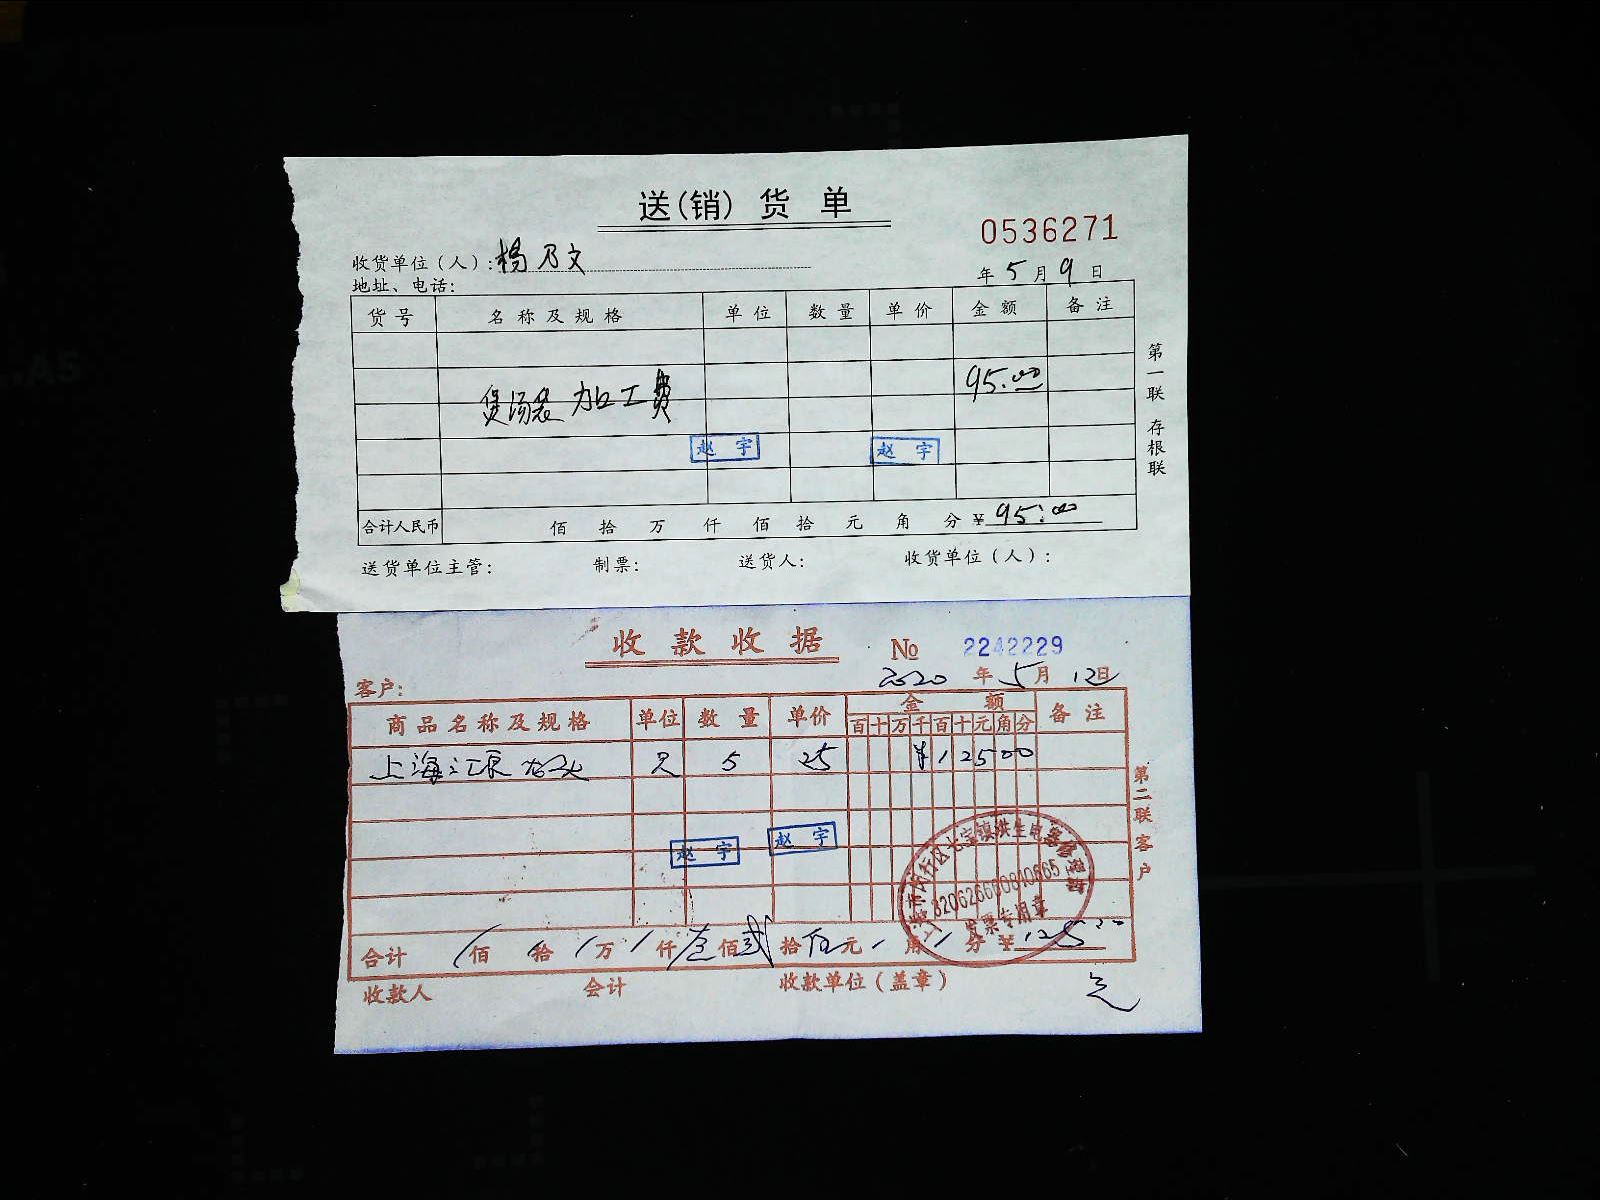 送(销)货单
0536271
收货单位(人):杨乃文
年5月9日
地址、电话:
货号 名称及规格 单位 数量 单价 金额 备注
煲汤袋加工费 95.00
赵宇 赵宇
合计人民币 佰 拾 万 仟 佰 拾 元 角 分 ¥95.00
送货单位主管: 制票: 送货人: 收货单位(人):
第一联 存根联
收款收据 № 2242229
2020年5月12日
客户:
商品名称及规格 单位 数量 单价 金额 备注
百十万千百十元角分
上海汇泉龙头 只 5 25 ¥12500
赵宇 赵宇
发票专用章
合计 / 佰 / 拾 / 万 / 仟 壹佰贰拾伍元 / 角 / 分 ¥125.00
收款人 会计 收款单位(盖章)
第二联 客户